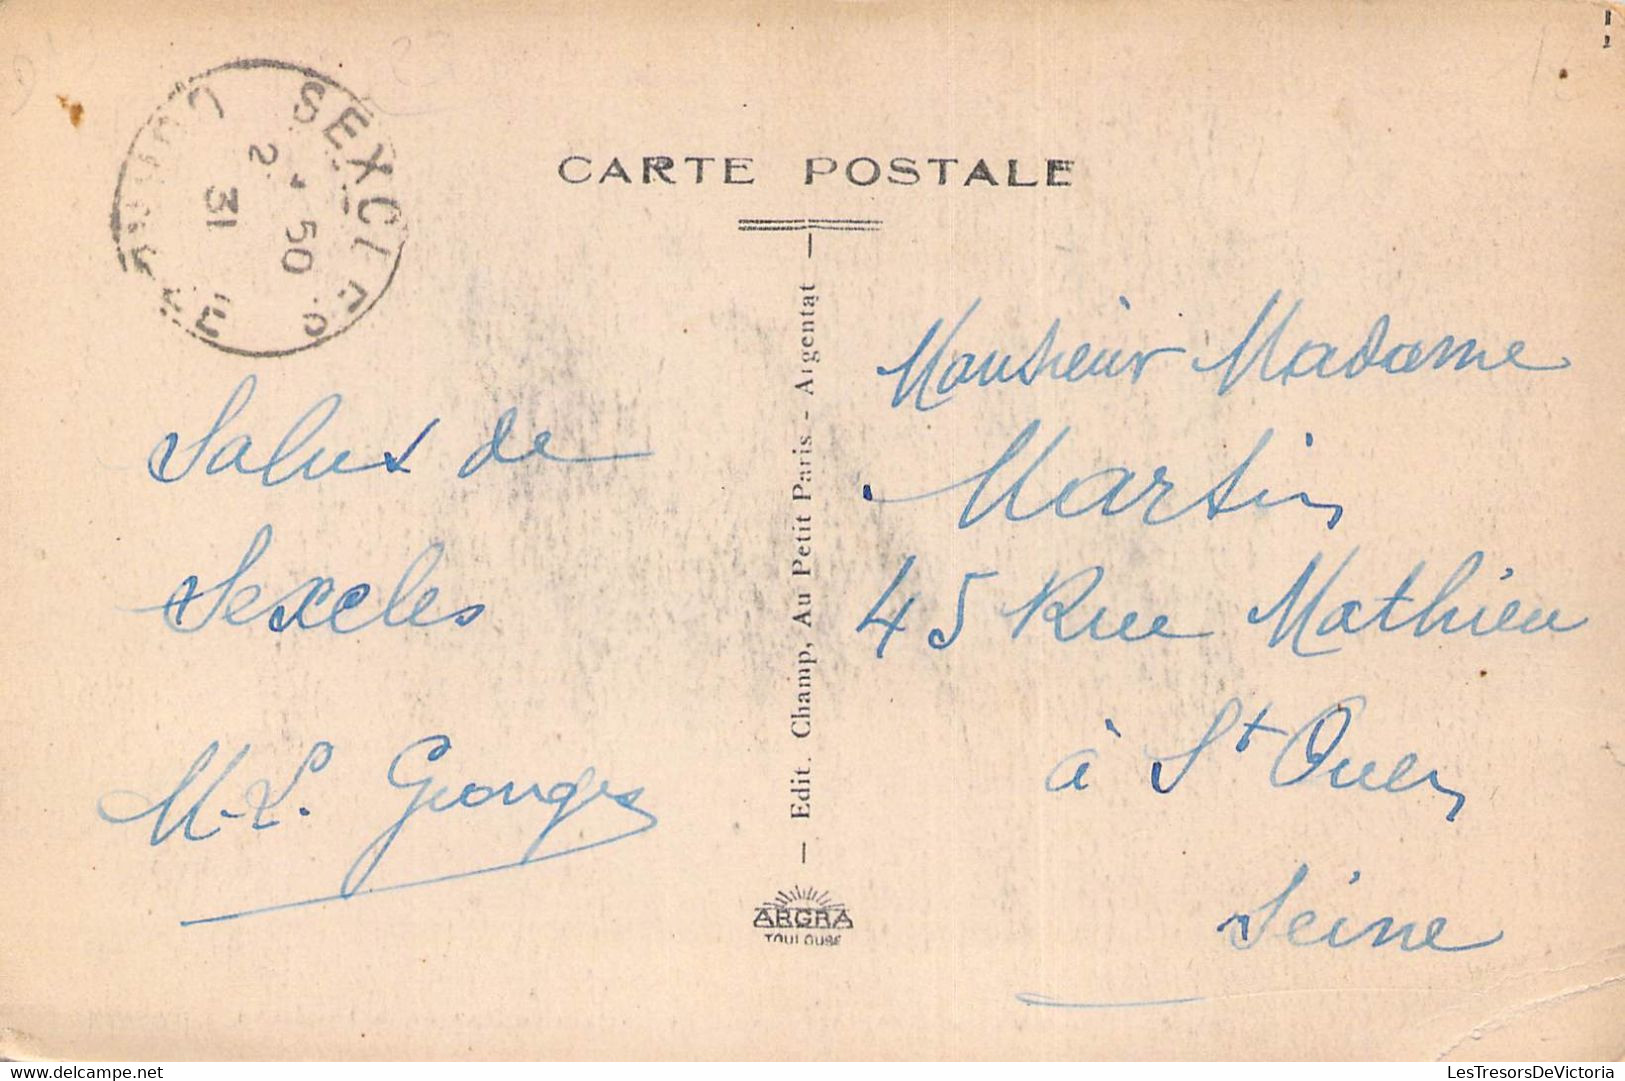 SEXCLES
50
31
CARTE POSTALE
Salut de
Sexcles
M.-L. Georges
— Edit. Champ, Au Petit Paris - Argentat —
ARGRA
TOULOUSE
Monsieur Madame
Martin
45 Rue Mathieu
à St Ouen
Seine
LesTresorsDeVictoria